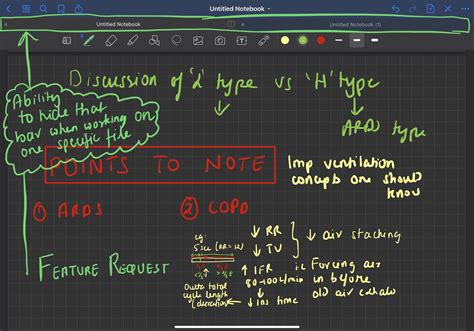 Untitled Notebook
Untitled Notebook
Untitled Notebook (1)
Discussion of 'L' type vs 'H' type
ARDS type
Ability
to hide that
bar when working on
one specific file
POINTS TO NOTE
Imp ventilation
concepts one should
know
① ARDS
② COPD
eg:
5 sec (RR=12)
↓ RR
↓ TV
↓ air stacking
↑ IFR
80-100 l/min
↓ Ins time
i.e. Forcing air
in before
old air exhale
total
cycle length
(duration)
FEATURE REQUEST